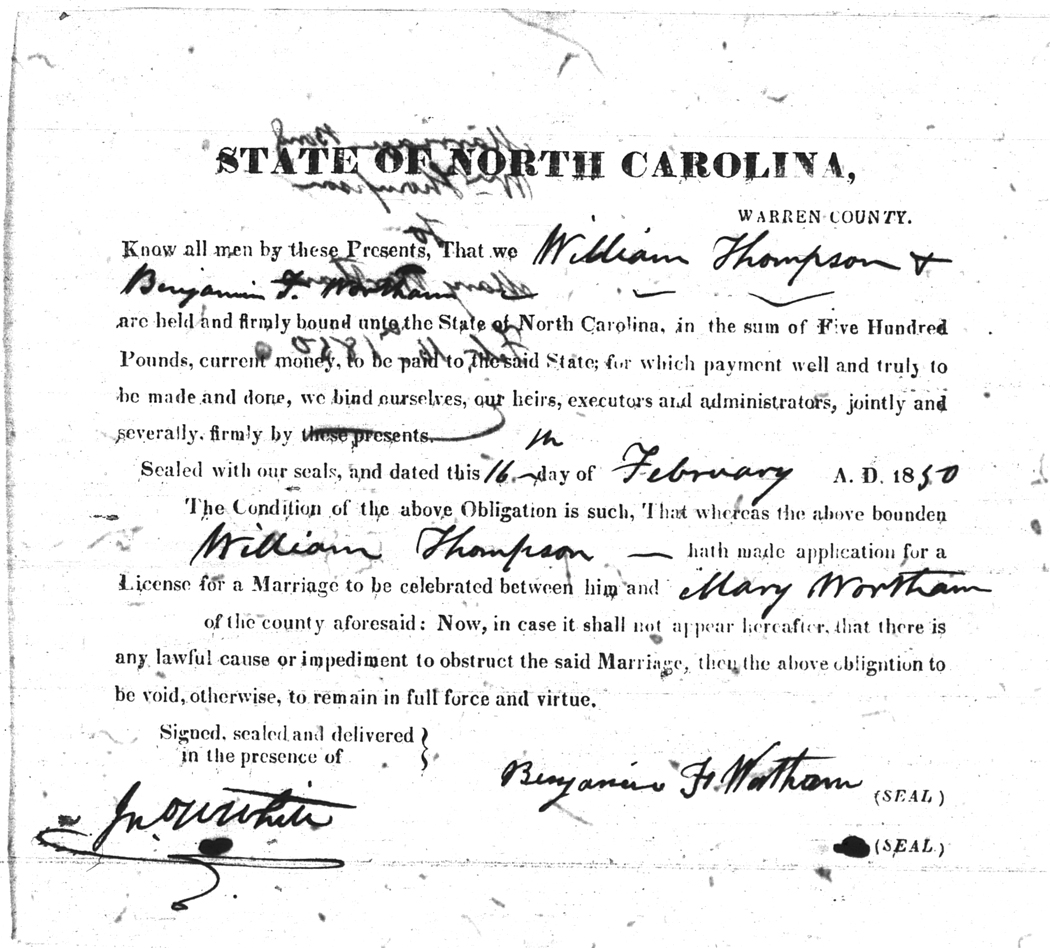 STATE OF NORTH CAROLINA,
WARREN COUNTY.
Know all men by these Presents, That we William Thompson &
Benjamin F. Wortham
are held and firmly bound unto the State of North Carolina, in the sum of Five Hundred
Pounds, current money, to be paid to the said State; for which payment well and truly to
be made and done, we bind ourselves, our heirs, executors and administrators, jointly and
severally, firmly by these presents.
Sealed with our seals, and dated this 16th day of February A. D. 1850
The Condition of the above Obligation is such, That whereas the above bounden
William Thompson — hath made application for a
License for a Marriage to be celebrated between him and Mary Wortham
of the county aforesaid: Now, in case it shall not appear hereafter, that there is
any lawful cause or impediment to obstruct the said Marriage, then the above obligation to
be void, otherwise, to remain in full force and virtue.
Signed, sealed and delivered
in the presence of
Benjamin F. Wortham (SEAL)
Jno W White
(SEAL)